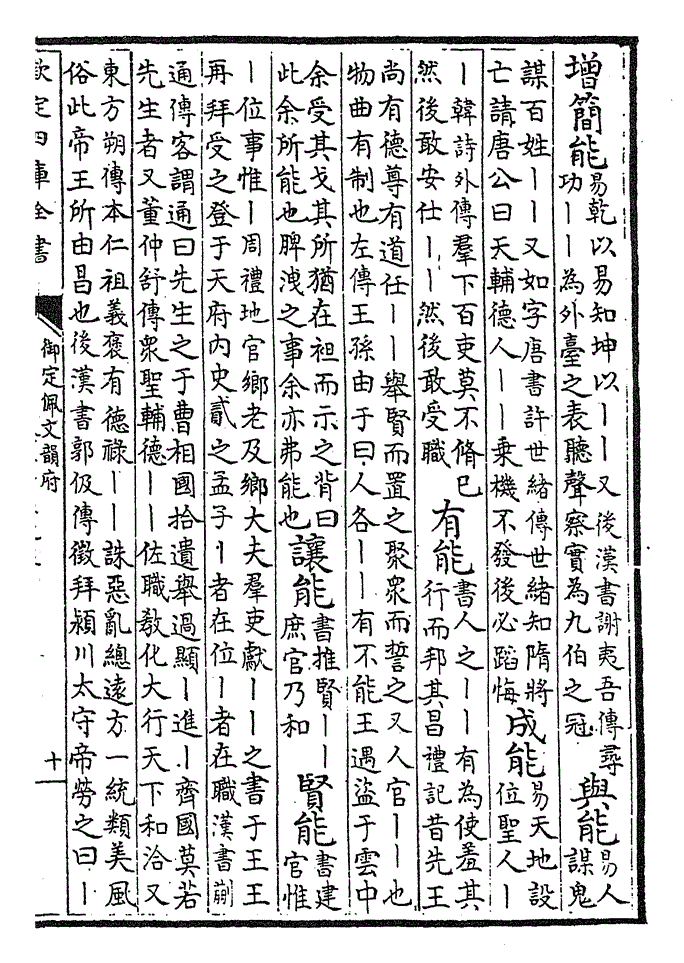 增簡能
易乾以易知坤以丨丨又後漢書謝夷吾傳尋
功丨丨為外臺之表聽聲察實為九伯之冠
與能
易人
謀鬼
謀百姓丨丨又如字唐書許世緒傳世緒知隋將
亡請唐公曰天輔德人丨丨乗機不發後必蹈悔
成能
易天地設
位聖人丨
丨韓詩外傳羣下百吏莫不脩已
然後敢安仕丨丨然後敢受職
有能
書人之丨丨有為使羞其
行而邦其昌禮記昔先王
尚有德尊有道任丨丨舉賢而置之聚衆而誓之又人官丨丨也
物曲有制也左傳王孫由于曰人各丨丨有不能王遇盜于雲中
余受其戈其所猶在袒而示之背曰
此余所能也脾洩之事余亦弗能也
讓能
書推賢丨丨
庶官乃和
賢能
書建
官惟
丨位事惟丨周禮地官鄉老及鄉大夫羣吏獻丨丨之書于王王
再拜受之登于天府内史貳之孟子丨者在位丨者在職漢書蒯
通傳客謂通曰先生之于曹相國拾遺舉過顯丨進丨齊國莫若
先生者又董仲舒傳衆聖輔德丨丨佐職敎化大行天下和洽又
東方朔傳本仁祖義褒有德祿丨丨誅惡亂總遠方一統類美風
俗此帝王所由昌也後漢書郭伋傳徵拜潁川太守帝勞之曰丨
欽定四庫全書
御定佩文韻府
十